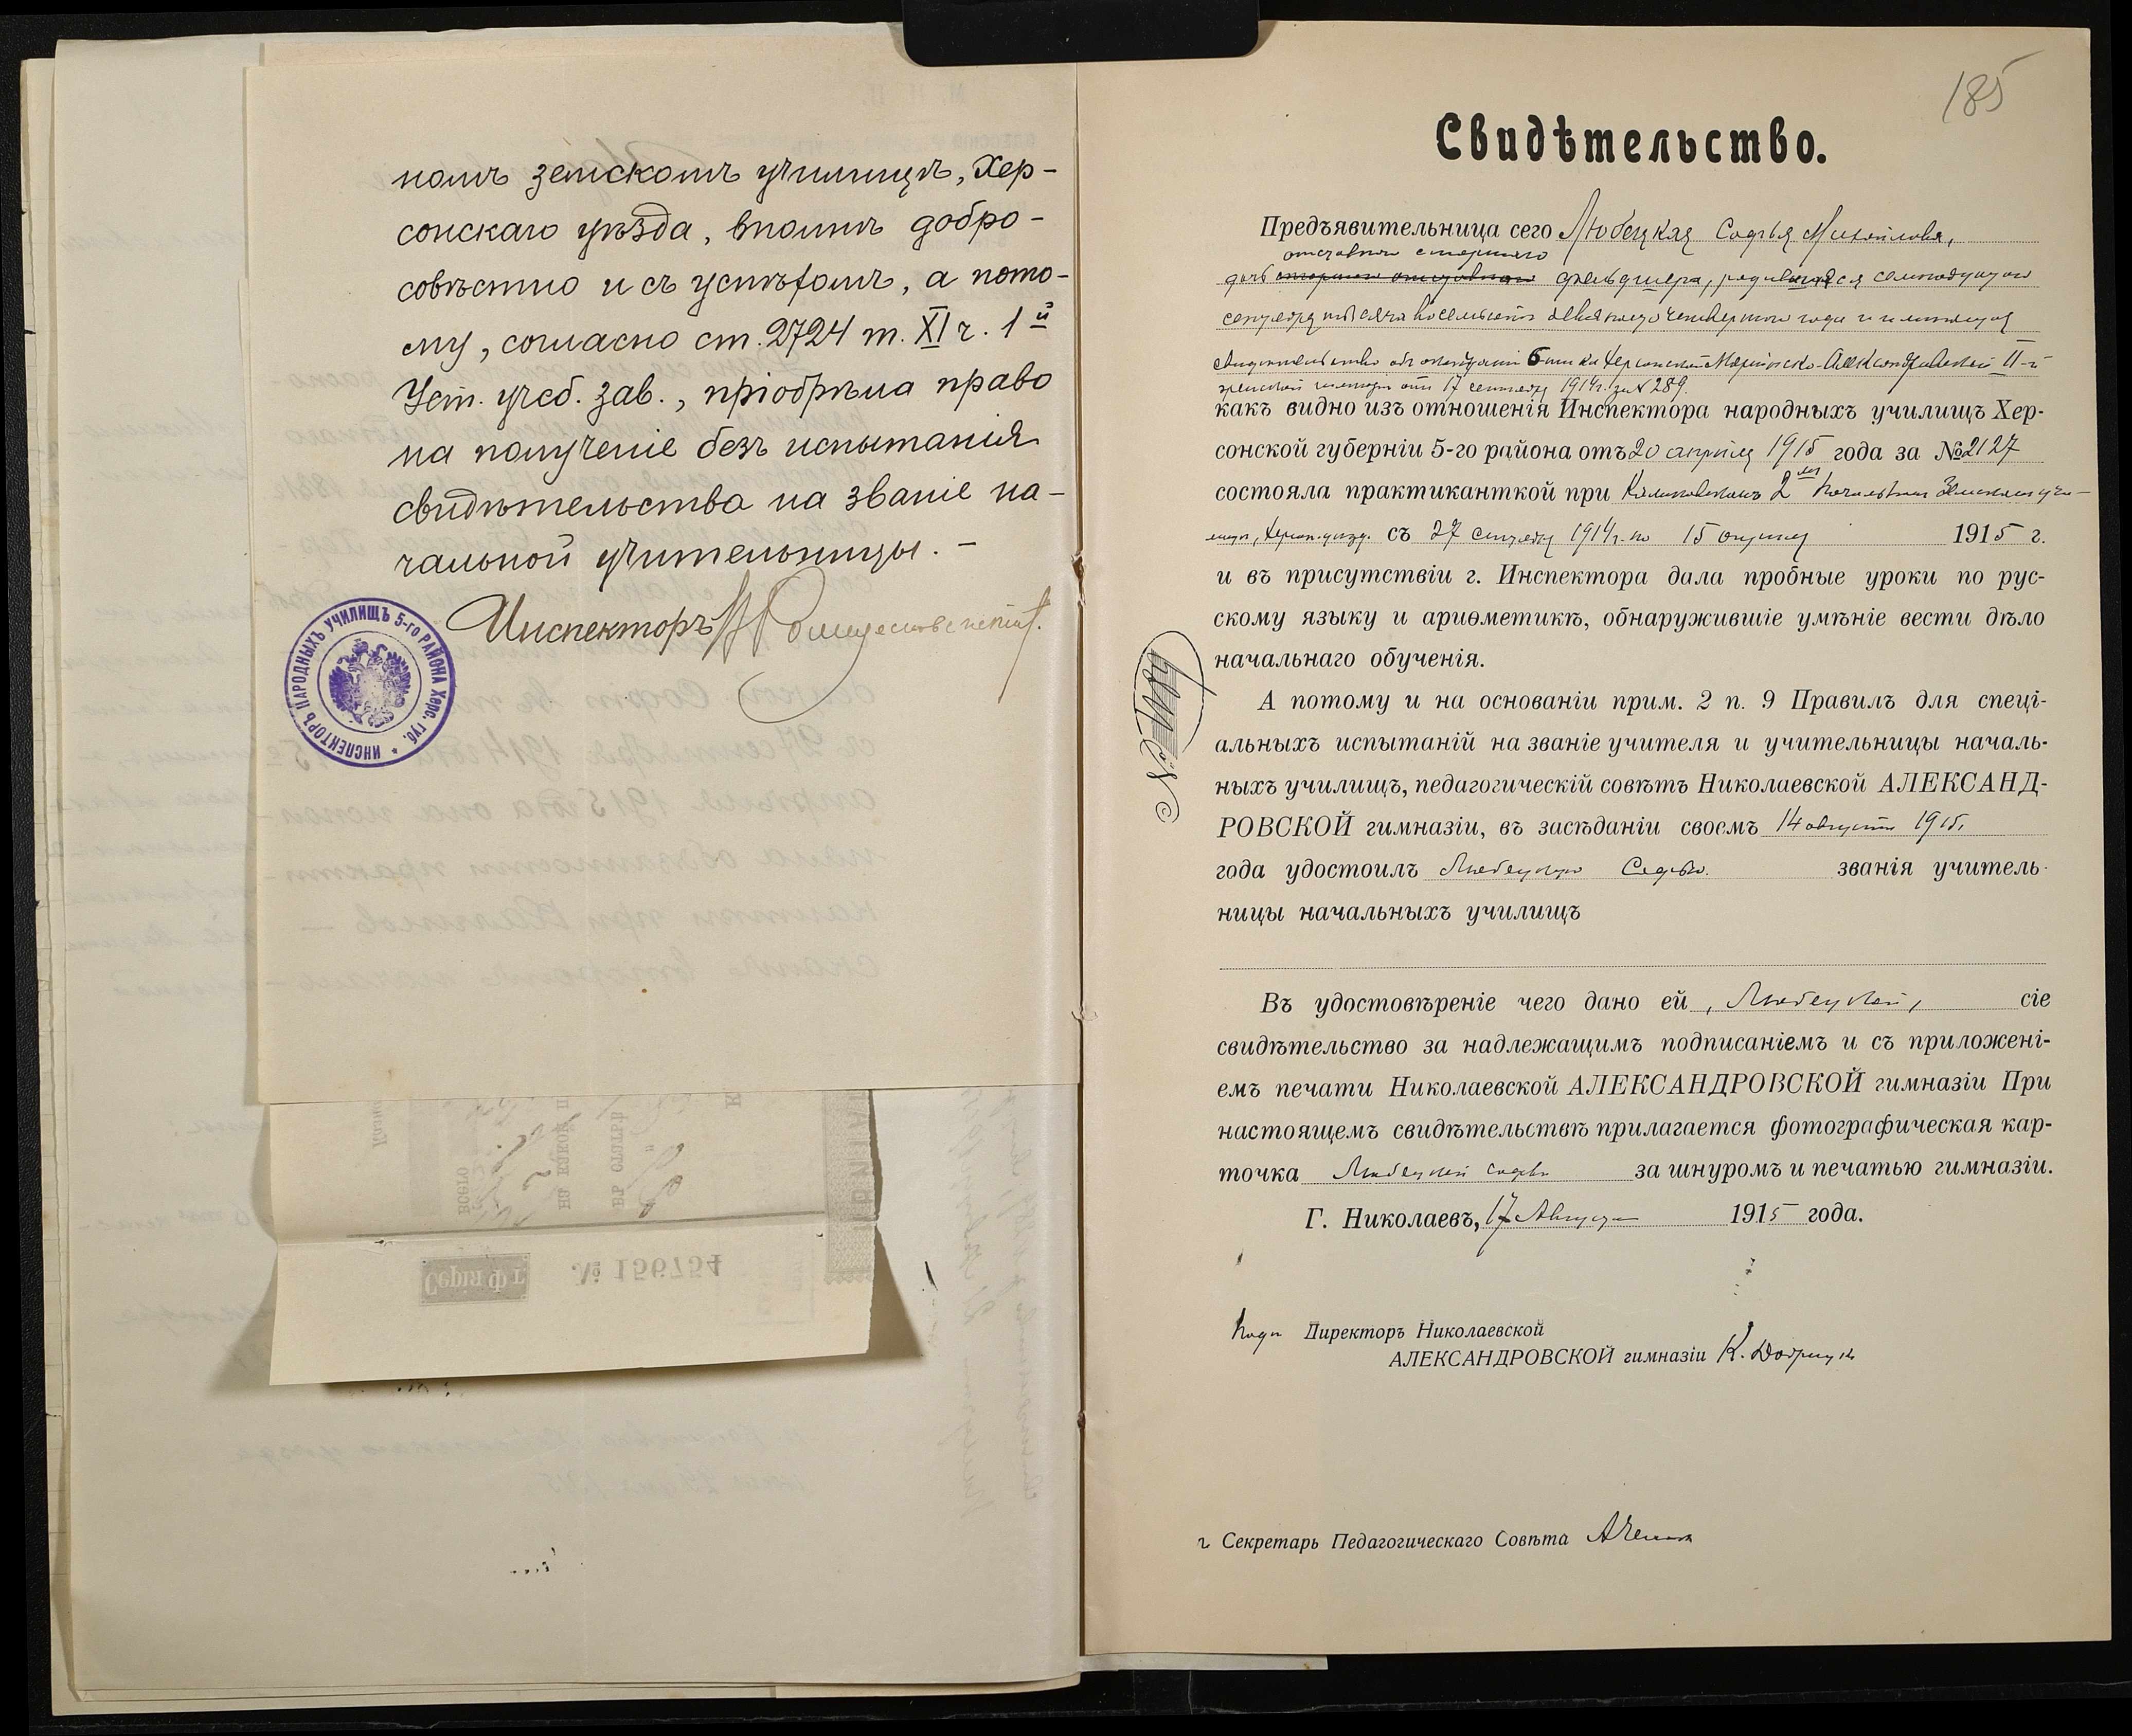 номъ земскомъ училищѣ, Хер-
сонскаго уѣзда, вполнѣ добро-
совѣстно и съ успѣхомъ, а пото-
му, согласно ст. 2724 т. XI ч. 1й
Уст. учеб. зав., пріобрѣла право
на полученіе безъ испытанія
свидѣтельства на званіе на-
чальной учительницы. –
Инспекторъ
ИНСПЕКТОРЪ НАРОДНЫХЪ УЧИЛИЩЪ 5-го РАЙОНА Херс. губ. *
Серія Ф т
№ 156754
185
Свидѣтельство.
Предъявительница сего Любецкая Софья Михайловна,
отставного старшаго
дочь фельдшера, родившаяся семнадцатаго
сентября тысяча восемьсотъ девяносто четвертаго года и имѣющая
свидѣтельство объ окончаніи 6-ти кл Херсонской Маріинско-Александровской II-й
женской гимназіи отъ 17 сентября 1914г. за № 289.
какъ видно изъ отношенія Инспектора народныхъ училищъ Хер-
сонской губерніи 5-го района отъ 20 апрѣля 1915 года за №2127
состояла практиканткой при 2 Начальномъ Земскомъ учи-
лищѣ, Херсон. уѣзд. съ 27 сентября 1914г. по 15 апрѣля 1915 г.
и въ присутствіи г. Инспектора дала пробные уроки по рус-
скому языку и ариѳметикѣ, обнаружившіе умѣніе вести дѣло
начальнаго обученія.
А потому и на основаніи прим. 2 п. 9 Правилъ для спеці-
альныхъ испытаній на званіе учителя и учительницы началь-
ныхъ училищъ, педагогическій совѣтъ Николаевской АЛЕКСАНД-
РОВСКОЙ гимназіи, въ засѣданіи своемъ 14 августа 1915
года удостоилъ Любецкую Софью званія учитель-
ницы начальныхъ училищъ
Въ удостовѣреніе чего дано ей, Любецкой, сіе
свидѣтельство за надлежащимъ подписаніемъ и съ приложені-
емъ печати Николаевской АЛЕКСАНДРОВСКОЙ гимназіи При
настоящемъ свидѣтельствѣ прилагается фотографическая кар-
точка Любецкой Софьи за шнуромъ и печатью гимназіи.
Г. Николаевъ, 17 Августа 1915 года.
Директоръ Николаевской
АЛЕКСАНДРОВСКОЙ гимназіи К.
Секретарь Педагогическаго Совѣта